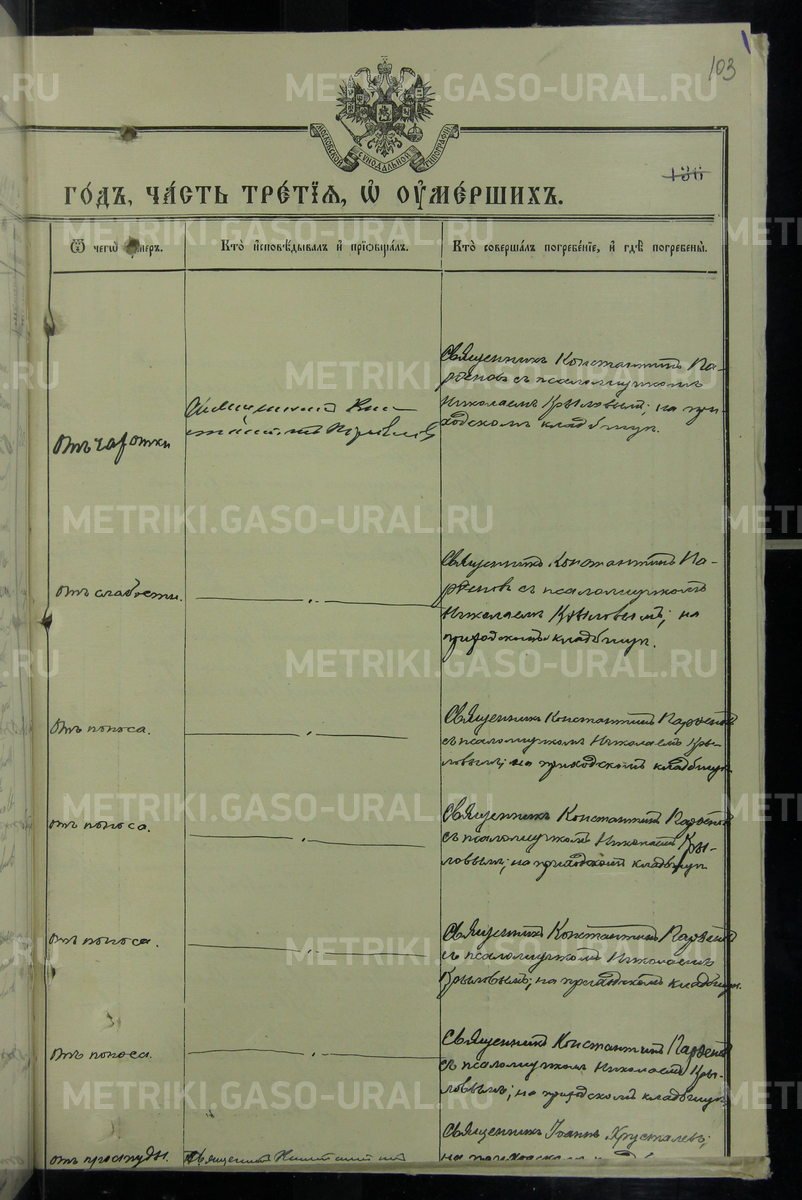 103
МОСКОВСКОЙ СѴНОДАЛЬНОЙ ТИПОГРАФІИ
130
ГО́ДЪ, ЧА́СТЬ ТРЕ́ТЇѦ, Ѡ҆ ОУ҆МЕ́РШИХЪ.
Ѿ чегѡ̀ оу҆́меръ.
Кто̀ и҆сповѣ́дывалъ и҆ прїѡбща́лъ.
Кто̀ соверша́лъ погребе́нїе, и҆ гдѣ̀ погребены̀.
Отъ чахотки
Священникъ
Священникъ Константинъ Па-
рѳеновъ съ псаломщикомъ
Николаемъ Крыловымъ; на при-
ходскомъ кладбищѣ.
Отъ слабости.
Священникъ Константинъ Па-
рѳеновъ съ псаломщикомъ
Николаемъ Крыловымъ; на
приходскомъ кладбищѣ.
Отъ поноса.
Священникъ Константинъ Парѳеновъ
съ псаломщикомъ Николаемъ Кры-
ловымъ; на приходскомъ кладбищѣ.
Отъ поноса.
Священникъ Константинъ Парѳеновъ
съ псаломщикомъ Николаемъ Кры-
ловымъ; на приходскомъ кладбищѣ.
Отъ поноса.
Священникъ Константинъ Парѳеновъ
съ псаломщикомъ Николаемъ
Крыловымъ; на приходскомъ кладбищѣ.
Отъ поноса.
Священникъ Константинъ Парѳеновъ
съ псаломщикомъ Николаемъ Кры-
ловымъ; на приходскомъ кладбищѣ.
Отъ простуды.
Священникъ
Священникъ Іоаннъ Хрусталевъ;
на приходскомъ
METRIKI.GASO-URAL.RU